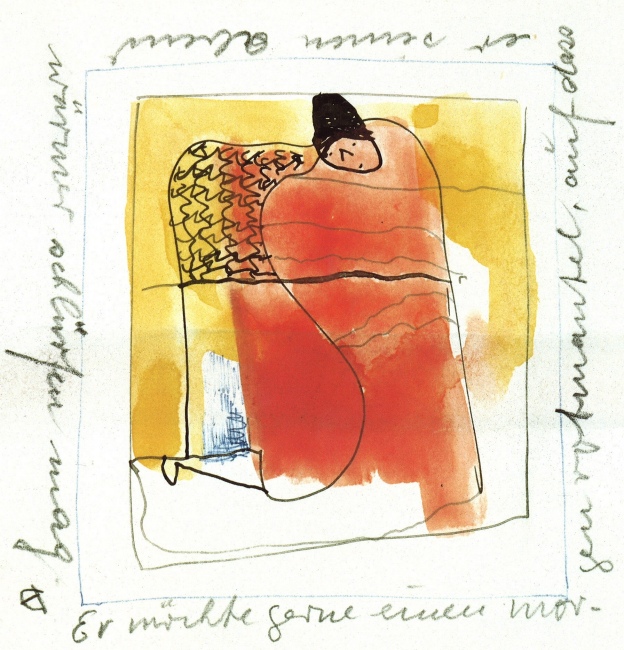 Er möchte gerne einen mor-
gen rotmantel, auf dass
er seinen abend
wärmer schlürfen mag